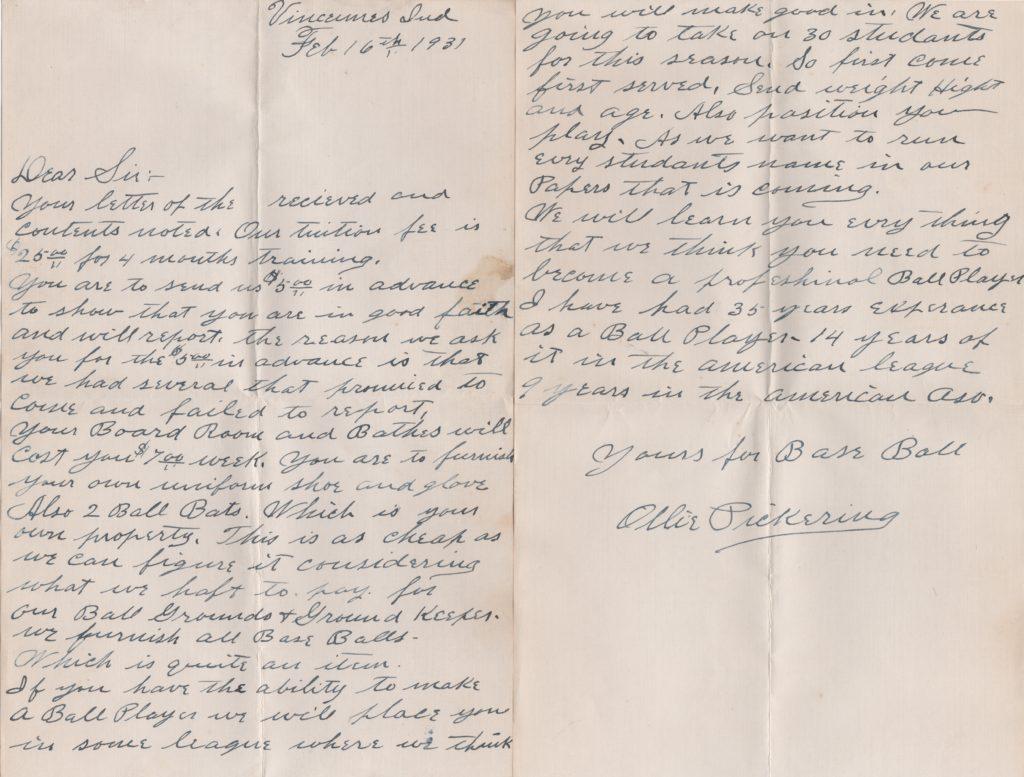 Vincennes Ind
Feb 16th 1931
Dear Sir:-
Your letter of the recieved and
contents noted. Our tuition fee is
$25.00 for 4 months training.
You are to send us $5.00 in advance
to show that you are in good faith
and will report. the reason we ask
you for the $5.00 in advance is that
we had several that promied to
come and failed to report,
Your Board Room and Bathes will
Cost you $7.00 week. You are to furnish
your own uniform shoe and glove
Also 2 Ball Bats. Which is your
own property. This is as cheap as
we can figure it considering
what we haft to pay for
our Ball Grounds & Ground Keeper.
we furnish all Base Balls-
Which is quite an item.
If you have the ability to make
a Ball Player we will place you
in some league where we think
you will make good in. We are
going to take on 30 students
for this season. So first come
first served. Send weight Hight
and age. Also position you
play. As we want to run
evry students name in our
Papers that is coming.
We will learn you evry thing
that we think you need to
become a profeshinal Ball Player
I have had 35 years experance
as a Ball Player- 14 years of
it in the american league
9 years in the american Aso.
Yours for Base Ball
Ollie Pickering